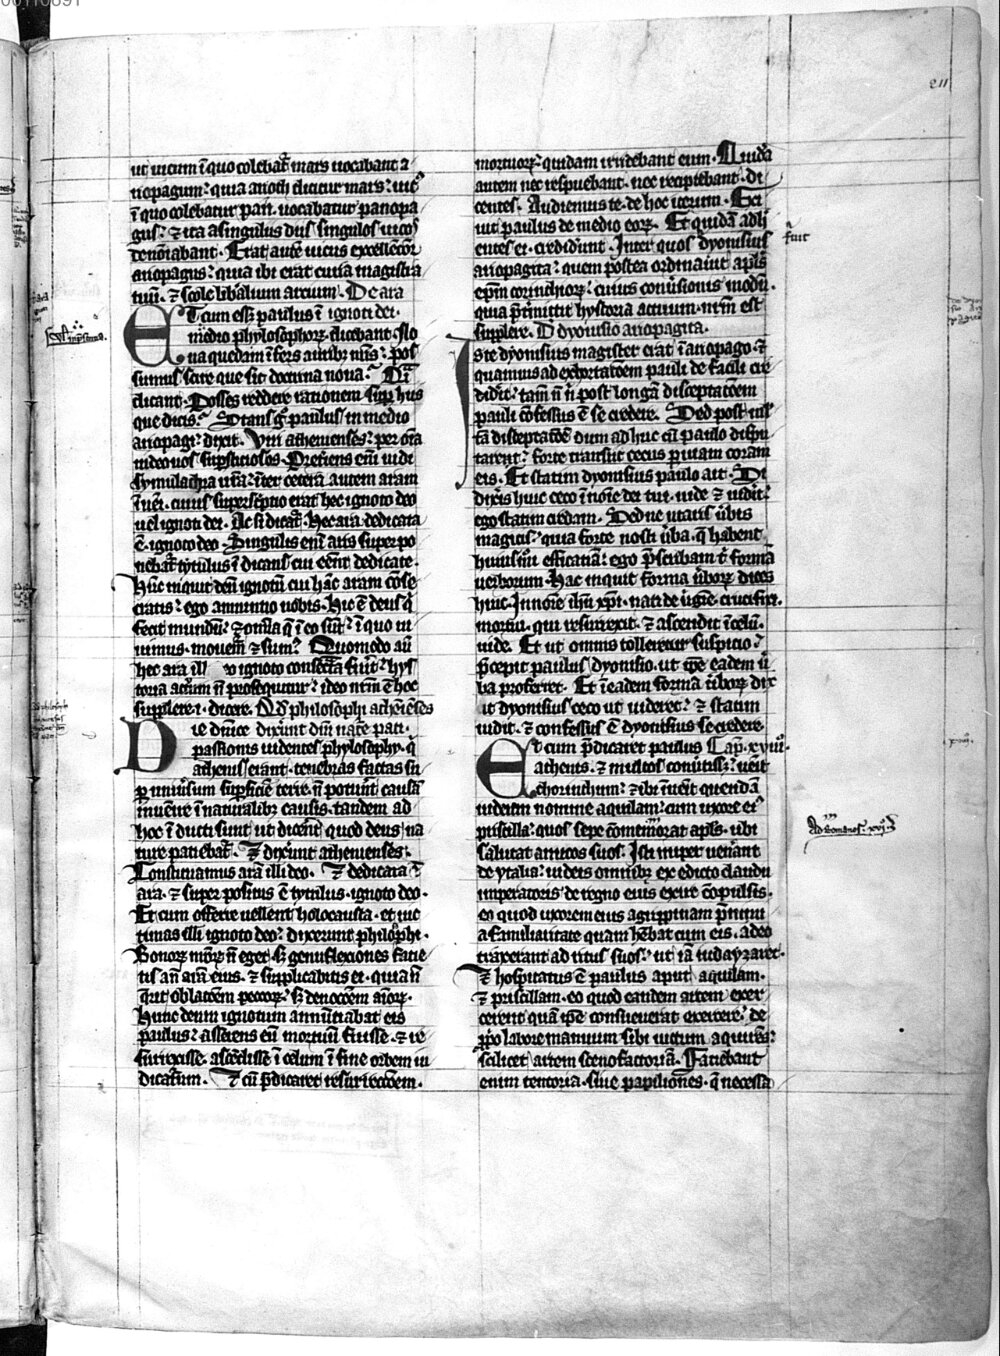 211
ut uicum ĩ quo colebat᷑ mars uocabant a
riopagum: quia arioth dicitur mars: uicũ
ĩ quo colebatur pan. uocabatur panopa
gus: ⁊ ita a singulis diis singulos uicos
denoĩabant. Erat autẽ uicus excellẽcior
ariopagus: quia ibi erat curia magistra
tuũ. ⁊ scole libalium artium. De ara
ET cum esset paulus ĩ ignoti dei.
medio phylosophorꝝ. dicebant. No
ua quedam ĩfers auribꝫ nr̃is: pos
sumus scire que sit doctrina noua.
dicant. Posses reddere rationem super hiis
que dicis. Stans g̾ paulus in medio
ariopagi: dixit. Viri athenienses: per oĩa
uideo uos supsticiosos. Preteriens eni uidi
symulachra ur̃a: ĩter cetera autem aram
ĩueni. cuius superscriptio erat hec ignoto deo
uel ignoti dei. Ac si dicat᷑. Hec ara dedicata
ẽ. ignoto deo. Singulis eni aris superpo
nebat᷑ tytulus ĩdicans cui eẽnt dedicate.
Hũc inquit deũ ignotũ cui hãc aram cõse
cratis: ego annuntio uobis. Hic ẽ deus q̇
fecit mundũ: ⁊ omĩa q̃ ĩ eo sũt: ĩ quo ui
uimus. mouem᷑ ⁊ sum᷑. Quomodo aũ
hec ara illi ignoto consecrata fuit: hys
toria actuum nõ prosequitur: ideo nr̃m ẽ hoc
supplere. i. dicere. Qd philosophi athẽiẽses
DIe dñice dixũt dm̃ nat᷑e pati.
passionis uidentes phylosophy. q̇
athenis erant. tenebras factas su
ꝑ uniũsum supficiẽ terre. nõ potuerũt causã
inuenire ĩ naturalibꝫ causis. tandem ad
hoc ĩducti sunt ut dicerẽt quod deus na
ture patiebat᷑. ⁊ dixerunt athenienses:
Constituamus arã illi deo. ⁊ dedicata ẽ
ara. ⁊ superpositus ẽ tytulus. ignoto deo.
Et cum offerre uellent holocausta. et uic
timas illi ignoto deo: dixerunt philosophi.
Bonorꝝ nr̃orꝝ nõ eget. sꝫ genuflexiones facie
tis añ aram eius. ⁊ supplicabitis ei. quia nõ
q̃rit oblatõem pecorꝝ. sꝫ deuocõem aĩorꝝ.
Hunc deum ignotum annũtiabat eis
paulus: asserens eũ mortuũ fuisse. ⁊ re
surrexisse. ascẽdisse ĩ celum ĩ fine orbem iu
dicaturum. Et cũ p̃dicaret resurrectõem.
mortuorꝝ: quidam irridebant eum. Quida
autem nec respuebant. nec recipiebant. di
centes. Audiemus te. de hoc iterum. Exi
uit paulus de medio eorꝝ. Et quidã adhe
rentes ei. crediderunt. Inter quos dyonisius
fuit
ariopagita: quem postea ordinauit apls̃
ep̃m corinthiorꝝ: cuius conũsionis modũ.
quia p̃tmittit hystoria actuum. nr̃m est
supplere. De dyonisio ariopagita.
Iste dyonisius magister erat ĩ ariopago. ⁊
quamuis ad exhortatõem pauli de facili cre
didit: tam̃ nõ nisi post longã disceptatõem
pauli cõfessus ẽ se credere. Sed post mul
tã disceptatõẽ dum adhuc cũ paulo dispu
tarent: forte transiit cecus ꝑ uiam coram
eis. Et statim dyonisius paulo ait. Si
dixeris huic ceco ĩ noĩe dei tui. uide ⁊ uiderit:
ego statim credam. Sed ne utaris uerbis
magicis: quia forte nosti uerba. q̃ habent
huiusmodi efficatiam: ego p̃scribam tibi formã
uerborum. Hac inquit forma uerborꝝ dices
huic. In noĩe ihu xpi. nati de uirgĩe. crucifixi.
mortui. qui resurrexit. ⁊ ascendit ĩ celũ.
uide. Et ut omnis tolleretur suspicio:
p̃cepit paulus dyonisio. ut ip̃e eadem uer
ba proferret. Et ĩ eadem formã uerborꝝ dix
it dyonisius ceco ut uideret: ⁊ statim
uidit. ⁊ confessus ẽ dyonisius se credere.
ET cum p̃dicaret paulus Cap. xviii.
athenis. ⁊ multos conũtisset: uẽit
chorinthum: ⁊ ibi ĩuenit quendã
iudeum nomine aquilam: cum uxore ei᷒
priscilla: quos sepe cõmemorat apls̃. ubi
Ad romanos. xvi
salutat amicos suos. Isti nuper uenerãt
de ytalia: iudeis omnibꝫ ex edicto claudii
imperatoris de regno eius exire cõpulsis.
eo quod uxorem eius agrippinam p̃nimi
a familiaritate quam hẽbat cum eis. adeo
traxerant ad ritus suos: ut iã iudayzaret.
⁊ hospitatus ẽ paulus aput aquilam.
⁊ priscillam. eo quod eandem artem exer
cerent quã ip̃e consueuerat exercere: de
pp̃o labore manuum sibi uictum aquirẽs:
scilicet artem scenofactoriã. Faciebant
enim tentoria. siue papiliones. q̃ necessa